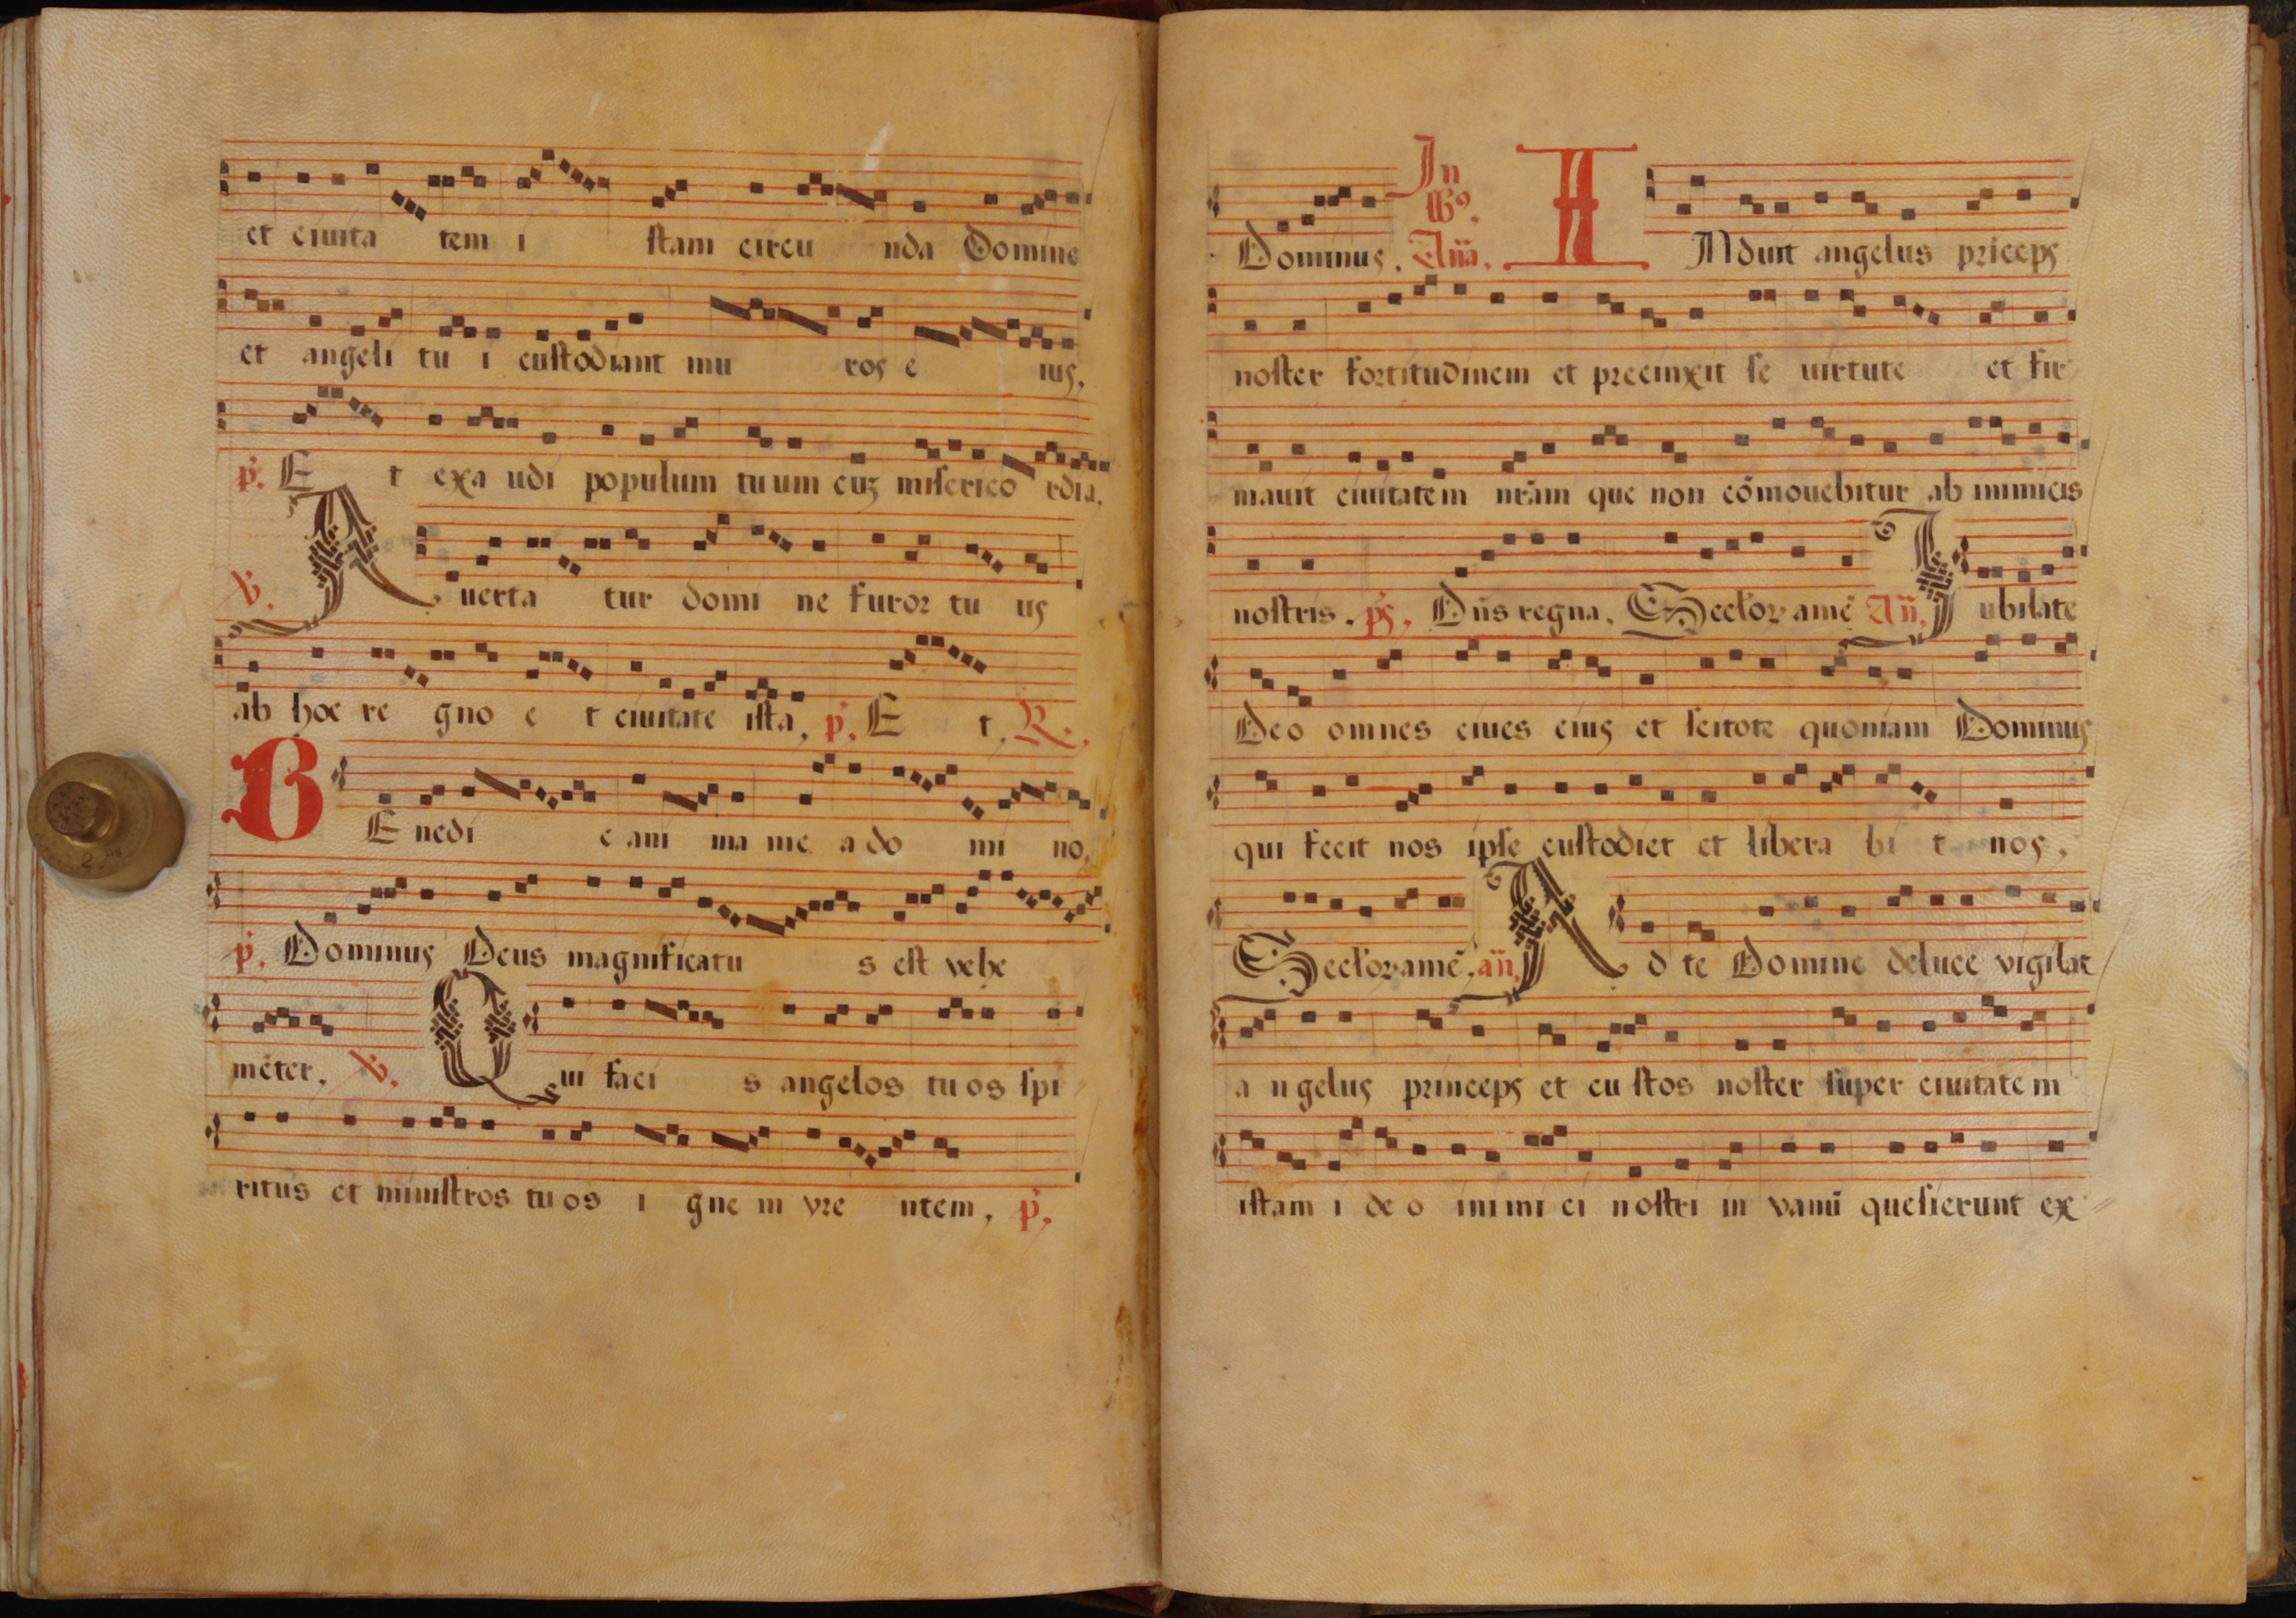 et ciuita tem i stam circu nda Domine
et angeli tu i custodiant mu ros e ius,
p. E t exa udi populum tuum cuz misericо rdia.
V. A uerta tur domi ne furor tu us
ab hoc re gno e t ciuitate ista, p. E t, R.
B E nedi c ani ma me a do mi no,
p. Dominus Deus magnificatu s est vehe
meter, V. Q ui faci s angelos tuos spi
ritus et ministros tuos i gne m vre ntem, p.
Dominus. In Aña. I Nduit angelus priceps
noster fortitudinem et precinxit se uirtute et fir
mauit ciuitatem nrām que non cōmouebitur ab inimicis
nostris. ps. Dñs regna. Seclor amē Añ, I ubilate
Deo omnes ciues eius et scitote quoniam Dominus
qui fecit nos ipse custodiet et libera bi t nos,
Seclor amē. añ, A d te Domine deluce vigilat
a n gelus princeps et cu stos noster super ciuitatem
istam i de o ini mi ci nostri in vanū quesierunt ex